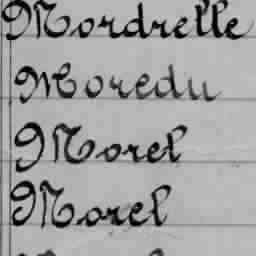 Mordrelle
Moredu
Morel
Morel